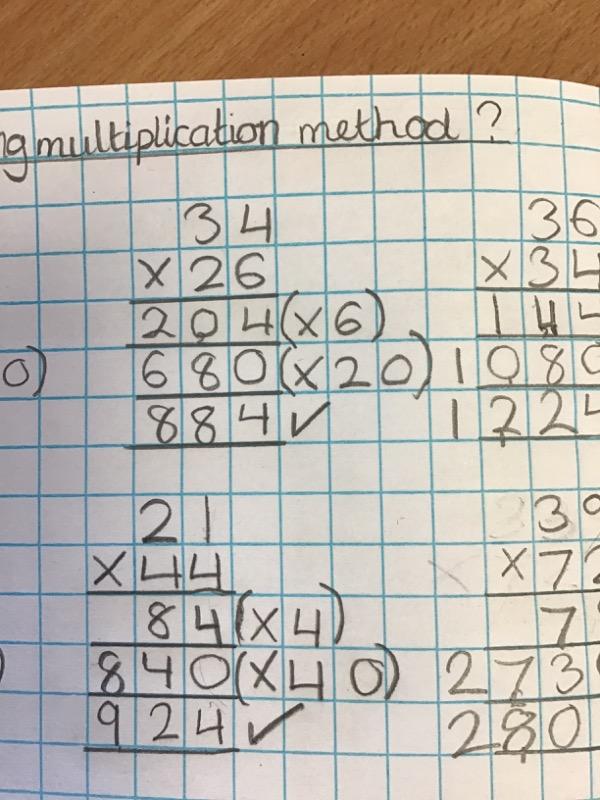 ng multiplication method ?
34
× 26
204 (× 6)
680 (× 20)
884 ✓
36
× 34
144
1080
1224
0)
21
× 44
84 (× 4)
840 (× 40)
924 ✓
39
× 72
7
273
280
)